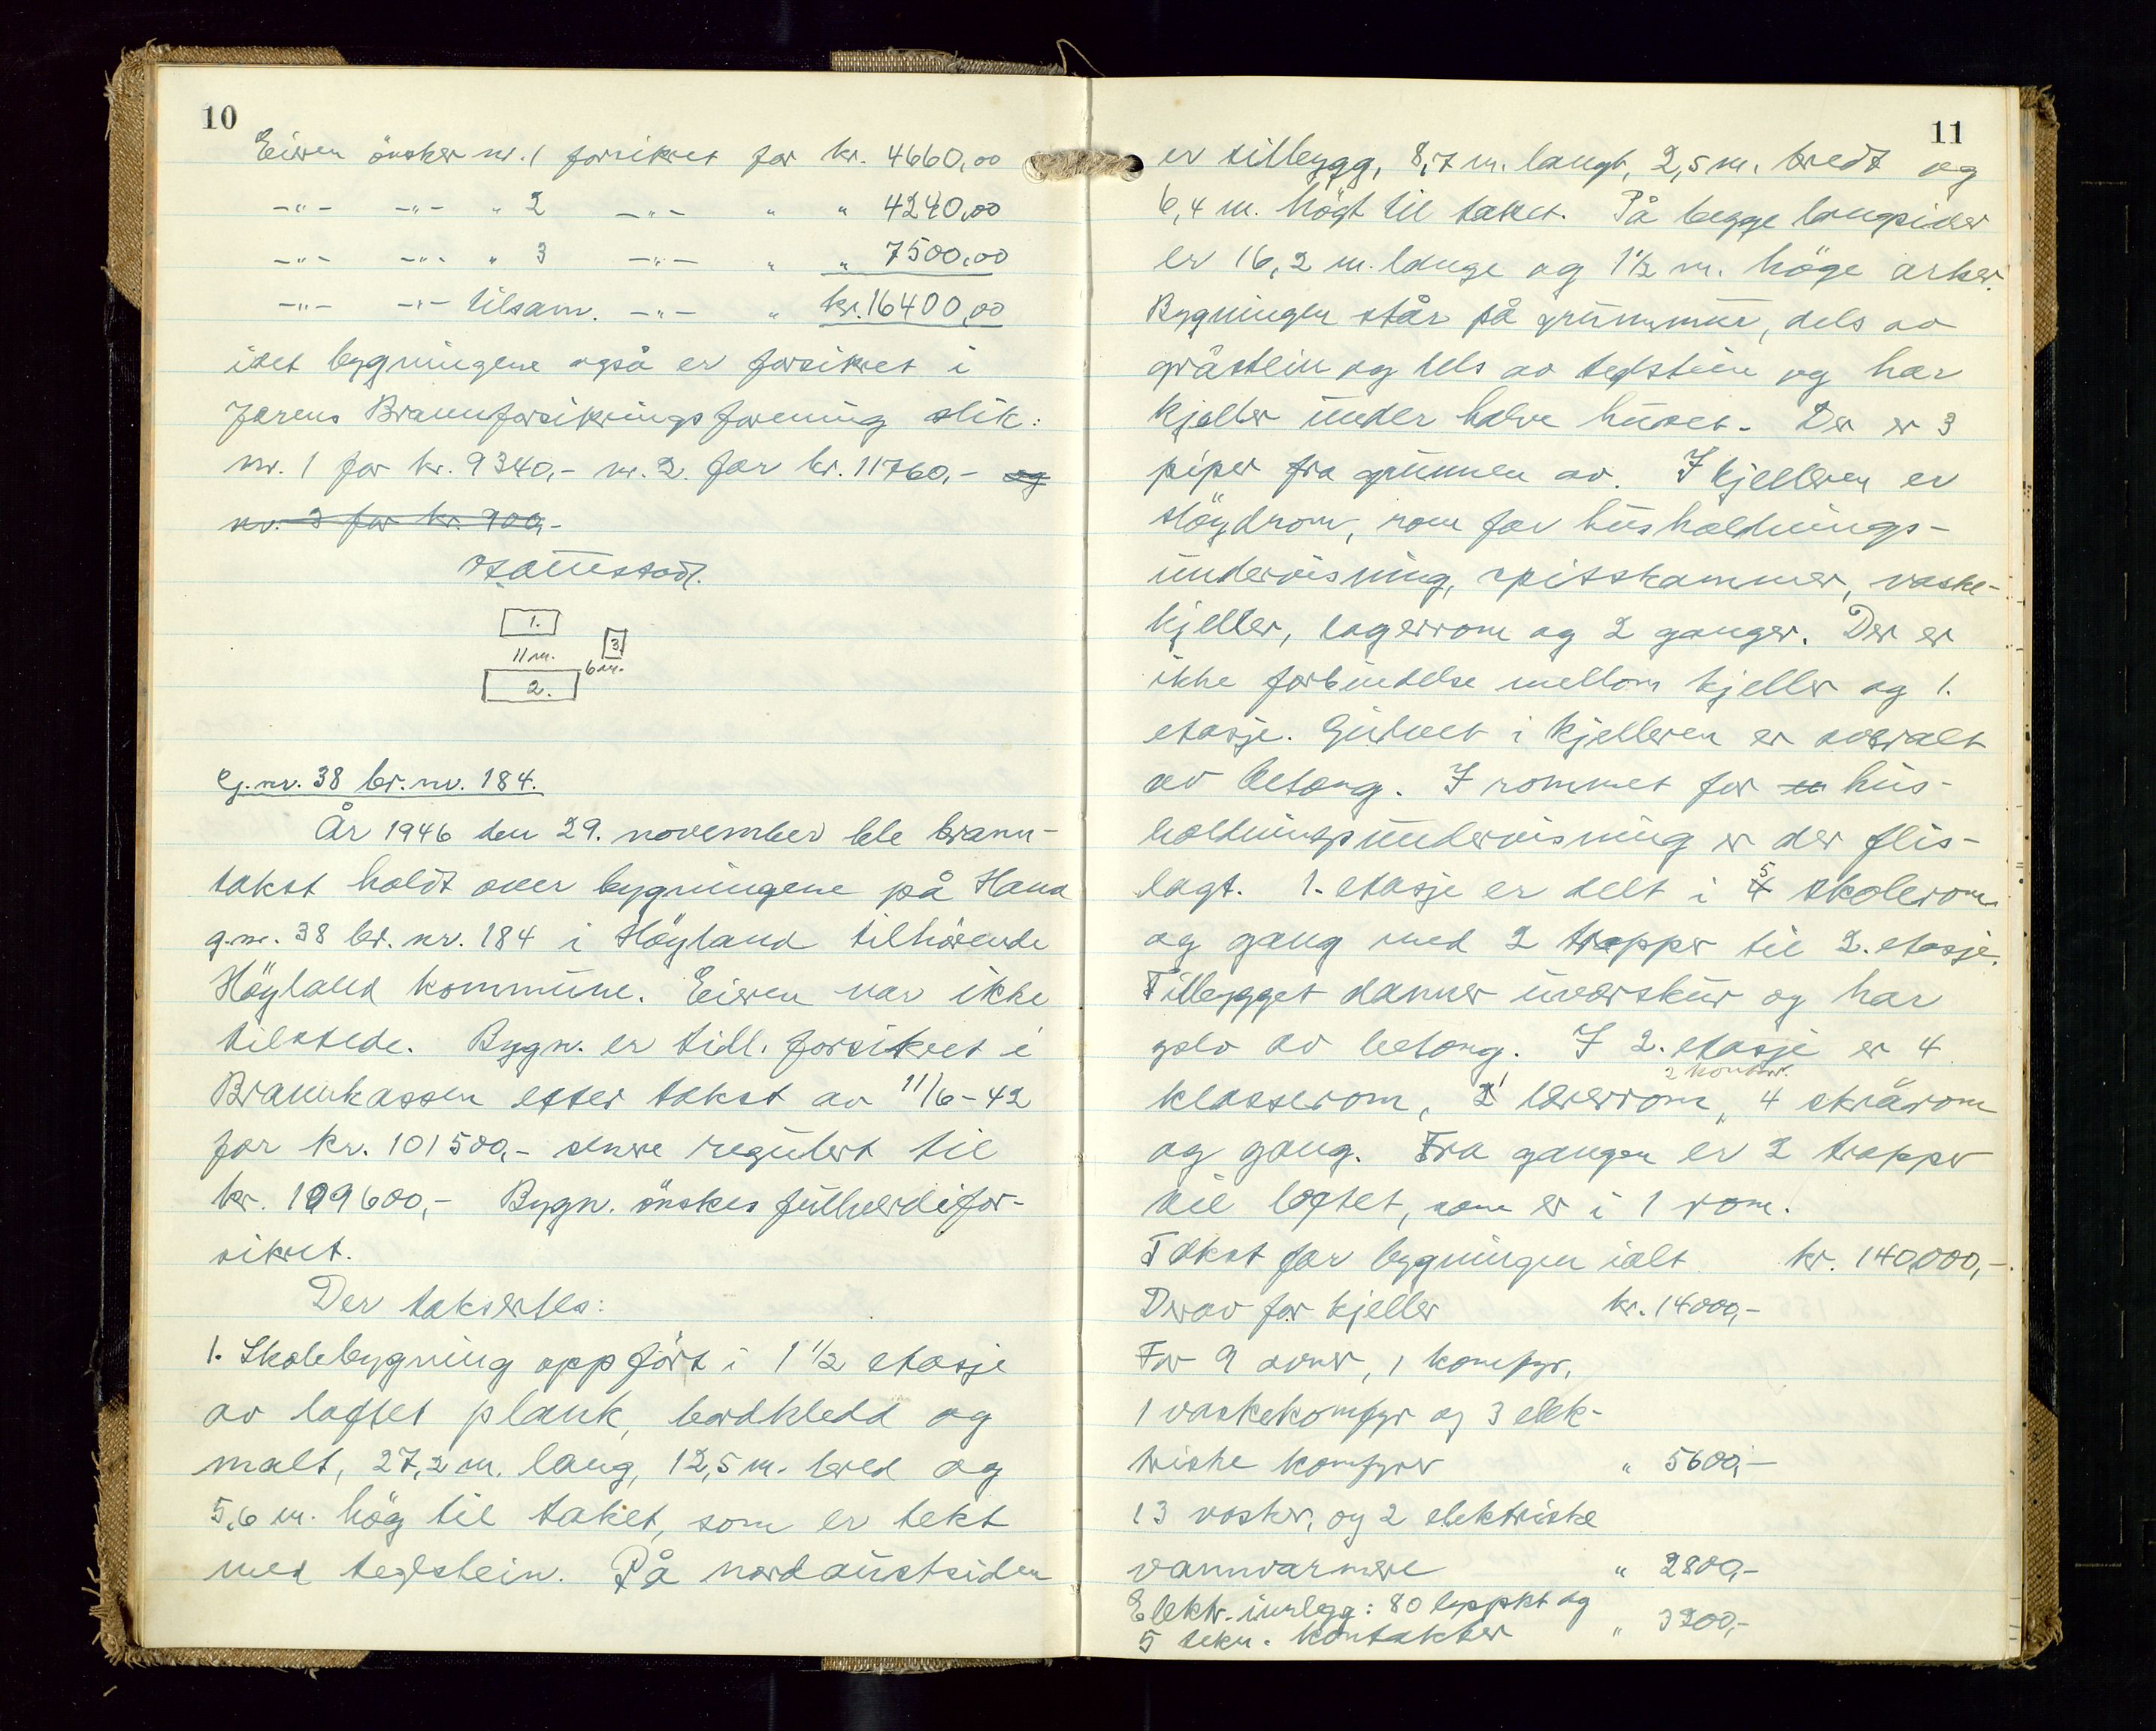 10
Eieren önsker nr. 1 forsikret for kr. 4660,00
-"- -"- " 2 -"- " " 4240,00
-"- -"- " 3 -"- " " 7500,00
-"- -"- tilsam. -"- " kr. 16400,00
idet bygningene også er forsikret i
Jærens Brannforsikringsforening slik:
nr. 1 for kr. 9340,- nr. 2. for kr. 11760,- og
nr. 3 for kr. 900,-
1.
11 m.
3
6 m.
2.
G.nr. 38 br.nr. 184.
År 1946 den 29. november ble brann-
takst holdt over bygningene på Hana
g.nr. 38 br. nr. 184 i Höyland tilhörende
Höyland kommune. Eieren var ikke
tilstede. Bygn. er tidl. forsikret i
Brannkassen etter takst av 11/6-42
for kr. 101500,- senere regulert til
kr. 109600,- Bygn. önskes fullverdifor-
sikret.
Der takseres:
1. Skolebygning oppfört i 1 1/2 etasje
av laftet plank, bordkledd og
malt, 27,2 m. lang, 12,5 m. bred og
5,6 m. hög til taket, som er tekt
med teglstein. På nordaustsiden
11
er tilbygg, 8,7 m. langt, 2,5 m. bredt og
6,4 m. högt til taket. På begge langsider
er 16,2 m. lange og 1 1/2 m. höge arker.
Bygningen står på grunnmur, dels av
gråstein og dels av teglstein og har
kjeller under halve huset. Der er 3
piper fra grunnen av. I kjelleren er
slöydrom, rom for husholdnings-
undervisning, spisskammer, vaske-
kjeller, lagerrom og 2 ganger. Der er
ikke forbindelse mellom kjeller og 1.
etasje. Gulvet i kjelleren er overalt
av betong. I rommet for hus-
holdningsundervisning er der flis-
lagt. 1. etasje er delt i 5 skolerom
og gang med 2 trapper til 2. etasje.
Tilbygget danner uværskur og har
golv av betong. I 2. etasje er 4
klasserom, 1 lærerrom, 2 kontor. 4 skrårom
og gang. Fra gangen er 2 trapper
til loftet, som er i 1 rom.
Takst for bygningen ialt kr. 140000,-
Derav for kjeller kr. 14000,-
For 9 ovner, 1 komfyr,
1 vaskekomfyr og 3 elek-
triske komfyrer " 5600,-
13 vasker, og 2 elektriske
vannvarmere " 2800,-
Elektr. innlegg: 80 lyspkt og
5 tekn. kontakter " 3200,-